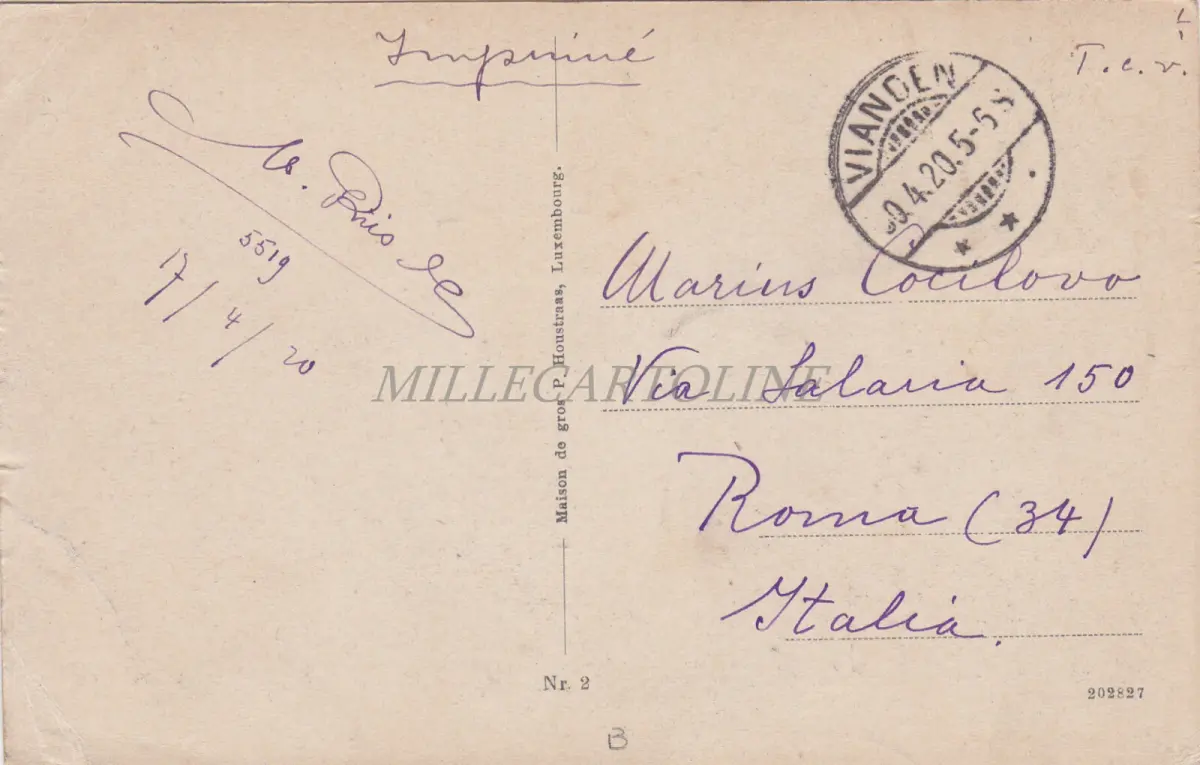 Imprimé
T.c.v.
VIANDEN
0.4.20.5-6 S
M.
5519
17/4/20
Marius Cocilovo
Via Salaria 150
Roma (34)
Italia.
Maison de gros P. Houstraas, Luxembourg.
MILLECARTOLINE
Nr. 2
202827
B